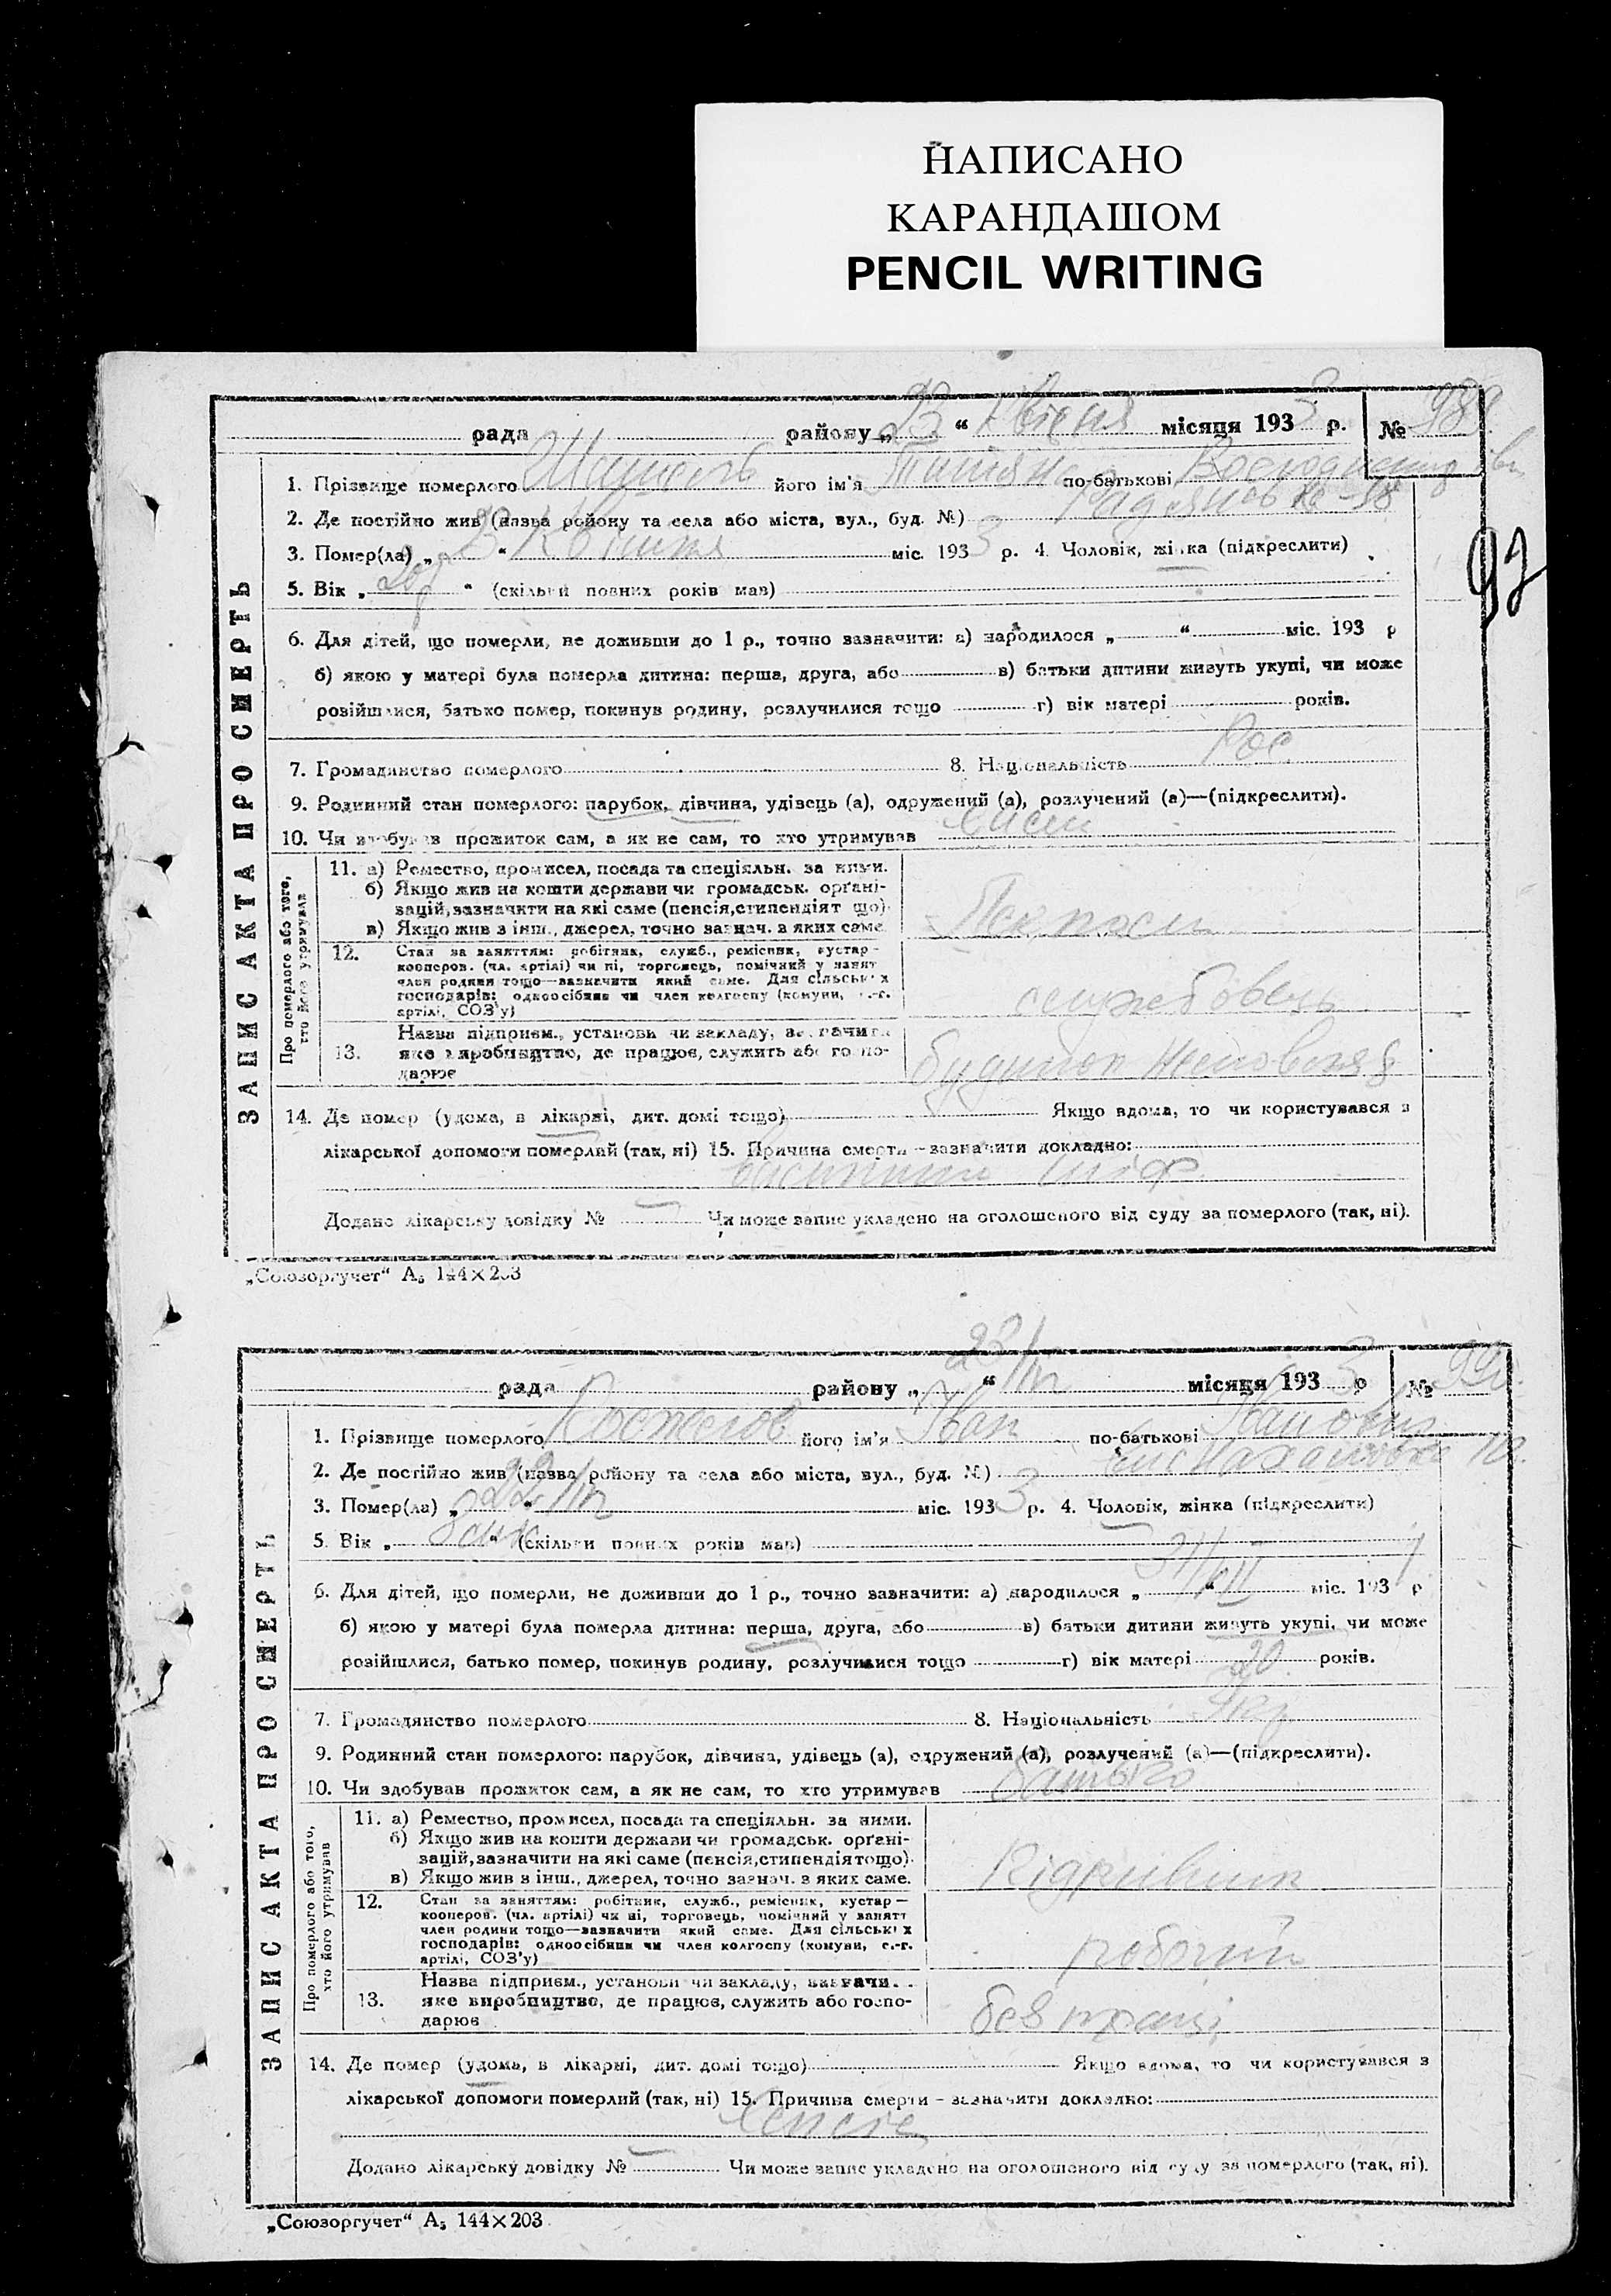 НАПИСАНО
КАРАНДАШОМ
PENCIL WRITING
рада району „23“ Квітня місяця 1933 р. № 989.
97
ЗАПИС АКТА ПРО СМЕРТЬ
1. Прізвище померлого його ім'я по-батькові
2. Де постійно жив (назва району та села або міста, вул., буд. №)
3. Помер(ла) „ “ Квітня міс. 1933 р. 4. Чоловік, жінка (підкреслити)
5. Вік „ “ (скільки повних років мав)
6. Для дітей, що померли, не доживши до 1 р., точно зазначити: а) народилося „ “ міс. 193 р
б) якою у матері була померла дитина: перша, друга, або в) батьки дитини живуть укупі, чи може
розійшлися, батько помер, покинув родину, розлучилися тощо г) вік матері років.
7. Громадянство померлого 8. Національність Рос
9. Родинний стан померлого: парубок, дівчина, удівець (а), одружений (а), розлучений (а)—(підкреслити).
10. Чи здобував прожиток сам, а як не сам, то хто утримував
Про померлого або того, хто його утримував
11. а) Ремество, промисел, посада та спеціяльн. за ними.
б) Якщо жив на кошти держави чи громадськ. орґані-
зацій, зазначити на які саме (пенсія, стипендіят що).
в) Якщо жив з інш., джерел, точно зазнач. з яких саме
12. Стан за заняттям: робітник, служб., ремісник, кустар-
кооперов. (чл. артілі) чи ні, торговець, помічний у занят
член родини тощо—зазначити який саме. Для сільських
господарів: одноосібник чи член колгоспу (комуни, с.-г.
артілі, СОЗ'у)
службовець
13. Назва підприєм., установи чи закладу, зазначити
яке виробництво, де працює, служить або госпо-
дарює
14. Де помер (удома, в лікарні, дит. домі тощо) Якщо вдома, то чи користувався з
лікарської допомоги померлий (так, ні) 15. Причина смерти – зазначити докладно:
тиф
Додано лікарську довідку № Чи може запис укладено на оголошеного від суду за померлого (так, ні).
„Союзоргучет“ А₅ 144×203
рада району „23/IV“ місяця 1933 р № 990.
ЗАПИС АКТА ПРО СМЕРТЬ
1. Прізвище померлого його ім'я Іван по-батькові Іванович
2. Де постійно жив (назва району та села або міста, вул., буд. №)
3. Помер(ла) „22/IV“ міс. 1933 р. 4. Чоловік, жінка (підкреслити)
5. Вік „ “ (скільки повних років мав)
6. Для дітей, що померли, не доживши до 1 р., точно зазначити: а) народилося „ “ міс. 193 р
б) якою у матері була померла дитина: перша, друга, або в) батьки дитини живуть укупі, чи може
розійшлися, батько помер, покинув родину, розлучилися тощо г) вік матері 20 років.
7. Громадянство померлого 8. Національність Укр
9. Родинний стан померлого: парубок, дівчина, удівець (а), одружений (а), розлучений (а)—(підкреслити).
10. Чи здобував прожиток сам, а як не сам, то хто утримував батько
Про померлого або того, хто його утримував
11. а) Ремество, промисел, посада та спеціяльн. за ними.
б) Якщо жив на кошти держави чи громадськ. орґані-
зацій, зазначити на які саме (пенсія, стипендія тощо).
в) Якщо жив з інш., джерел, точно зазнач. з яких саме.
12. Стан за заняттям: робітник, служб., ремісник, кустар—
кооперов. (чл. артілі) чи ні, торговець, помічний у занятт
член родини тощо—зазначити який саме. Для сільських
господарів: одноосібник чи член колгоспу (комуни, с.-г.
артілі, СОЗ'у)
робочий
13. Назва підприєм., установи чи закладу, зазначи
яке виробництво, де працює, служить або госпо-
дарює
без праці
14. Де помер (удома, в лікарні, дит. домі тощо) Якщо вдома, то чи користувався з
лікарської допомоги померлий (так, ні) 15. Причина смерти – зазначити докладно:
Додано лікарську довідку № Чи може запис укладено на оголошеного від суду за померлого (так, ні).
„Союзоргучет“ А₅ 144×203